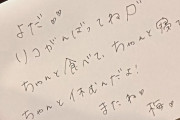 よだ♡♡
リコがんばってね
ちゃんと食べて、ちゃんと寝て
ちゃんと休むんだよ!
またね♡